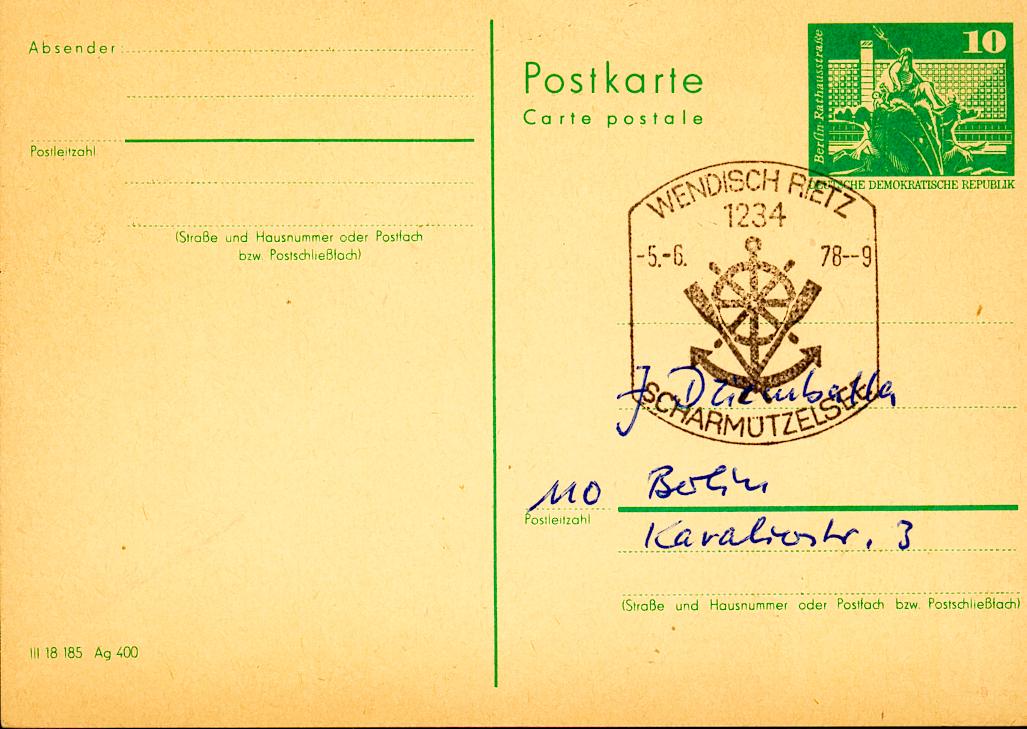 Absender
Postleitzahl
(Straße und Hausnummer oder Postfach
bzw. Postschließfach)
III 18 185 Ag 400
Postkarte
Carte postale
10
Berlin Rathausstraße
DEUTSCHE DEMOKRATISCHE REPUBLIK
WENDISCH RIETZ
1234
-5.-6. 78--9
SCHARMÜTZELSEE
J
110 Berlin
Postleitzahl
3
(Straße und Hausnummer oder Postfach bzw. Postschließfach)